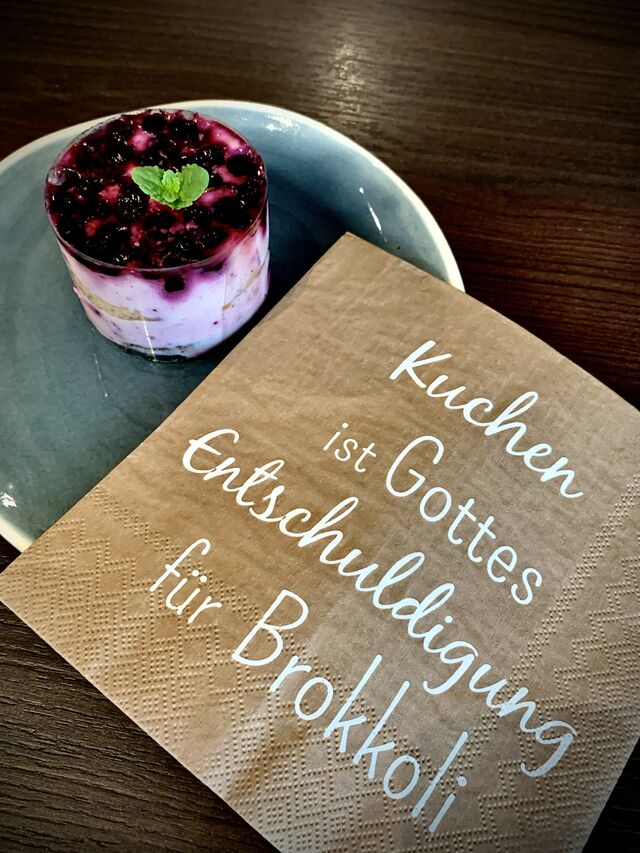 Kuchen
ist Gottes
Entschuldigung
für Brokkoli